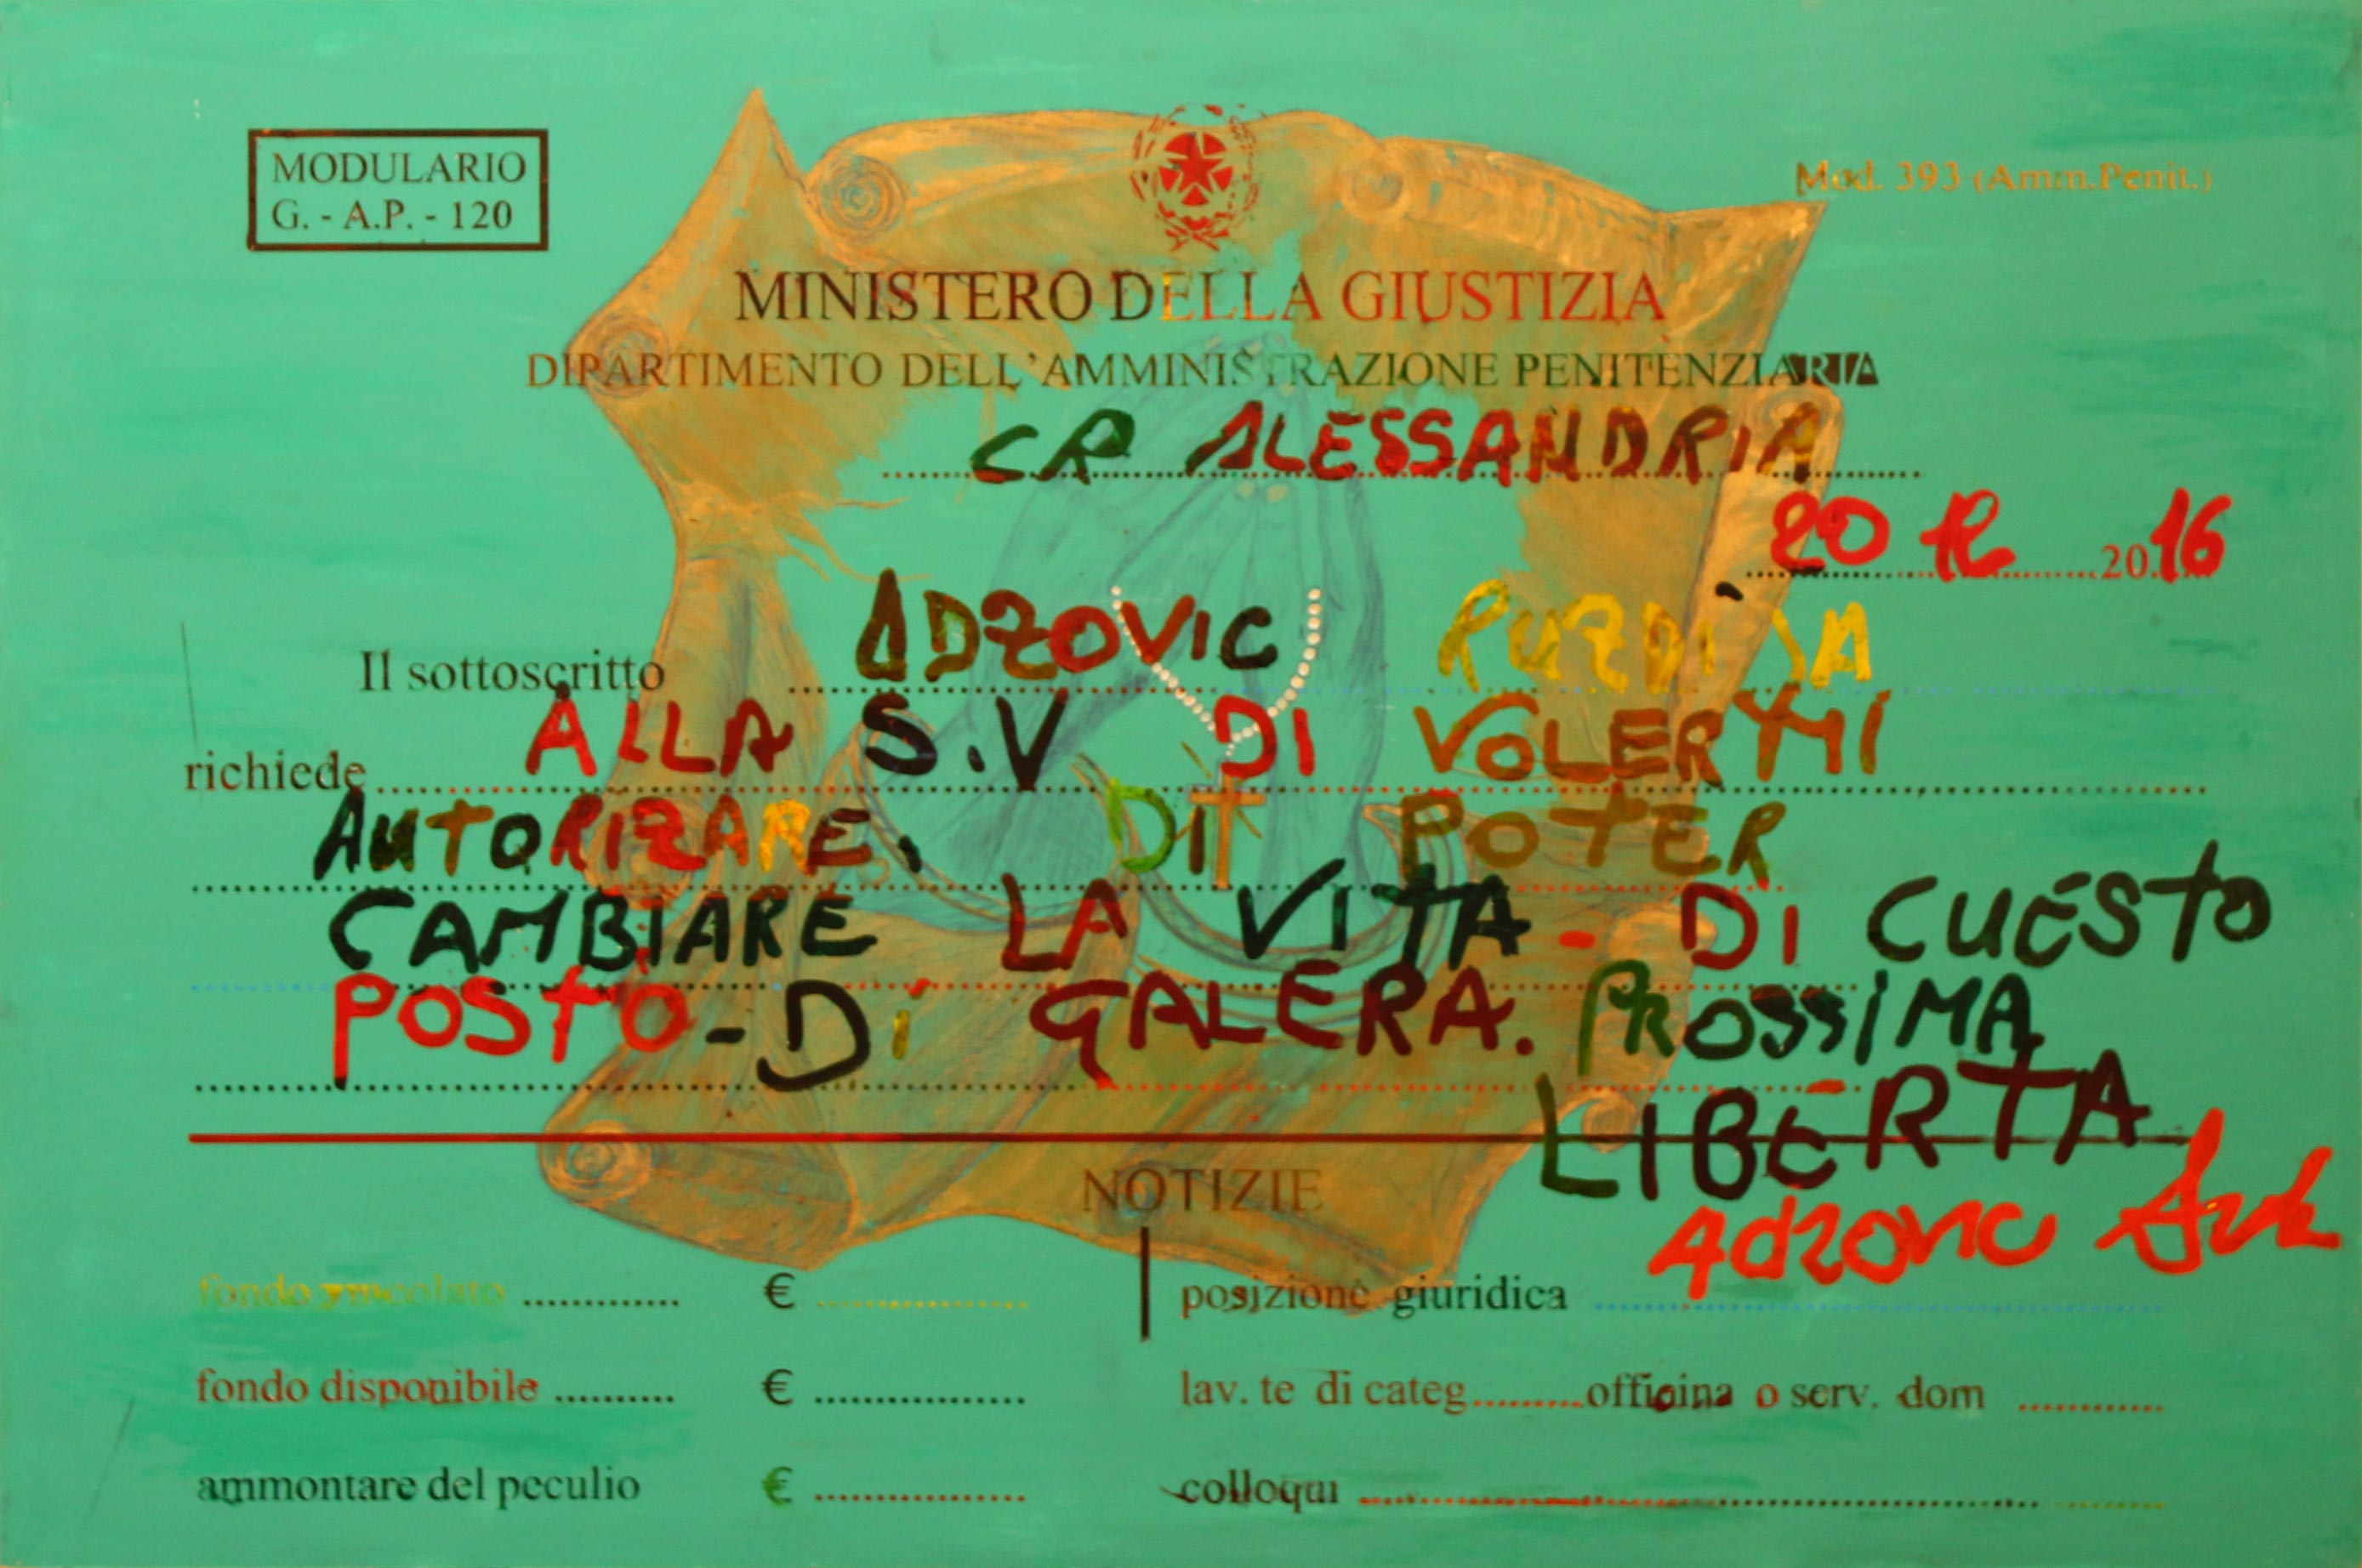 MODULARIO
G. - A.P. - 120
Mod. 393 (Amm.Penit.)
MINISTERO DELLA GIUSTIZIA
DIPARTIMENTO DELL'AMMINISTRAZIONE PENITENZIARIA
CR ALESSANDRIA
20 12 2016
Il sottoscritto ADZOVIC RUZDIJA
richiede ALLA S.V DI VOLERMI
AUTORIZARE. DI POTER
CAMBIARE LA VITA - DI CUESTO
POSTO - Di GALERA. PROSSIMA
LIBERTA
Adzovic
NOTIZIE
fondo vincolato .......... € ..............
posizione giuridica ..............
fondo disponibile .......... € ..............
lav. te di categ.........officina o serv. dom ..........
ammontare del peculio € ..............
colloqui ..............